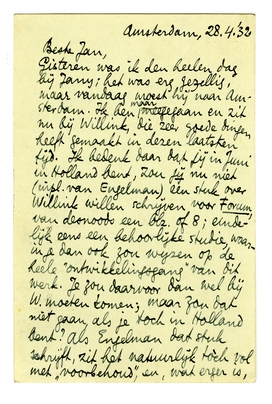 Amsterdam, 28.4.'32
Beste Jan,
Gisteren was ik den heelen dag
bij Jany; het was erg gezellig,
maar vandaag moest hij naar Am-
sterdam. Ik ben maar meegegaan en zit
nu bij Willink, die zeer goede dingen
heeft gemaakt in dezen laatsten
tijd. Ik bedenk daar dat jij in Juni
in Holland bent, zou jij nu niet
(i.pl. van Engelman), een stuk over
Willink willen schrijven voor Forum
van desnoods een blz. of 8; einde-
lijk eens een behoorlijke studie, waar-
in je dan ook zou wijzen op de
heele "ontwikkelingsgang" van dit
werk. Je zou daarvoor dan wel bij
W. moeten komen; maar zou dat
niet gaan, als je toch in Holland
bent? Als Engelman dat stuk
schrijft, zit het natuurlijk toch vol
met "voorbehoud", en, wat erger is,